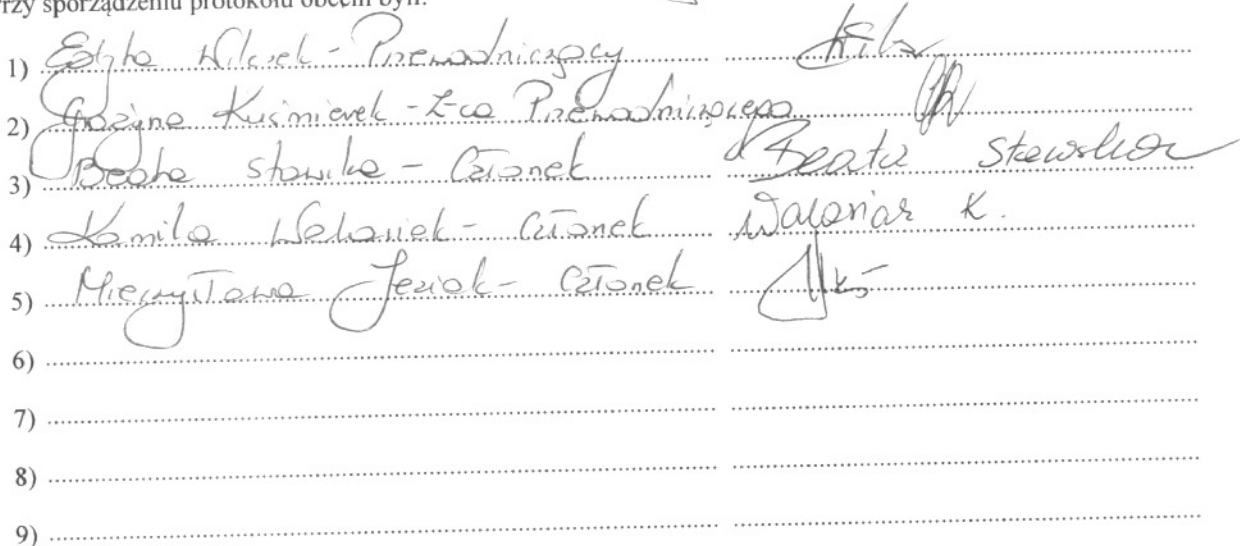 rzy sporządzeniu protokołu obecni byli:
1) Edyta Wilczek - Przewodniczący
2) Grażyna Kuśmierek - Z-ca Przewodniczącego
3) Beata Stawska - Członek Beata Stawska
4) Kamila - Członek K.
5) Mieczysława Jeziak - Członek
6)
7)
8)
9)